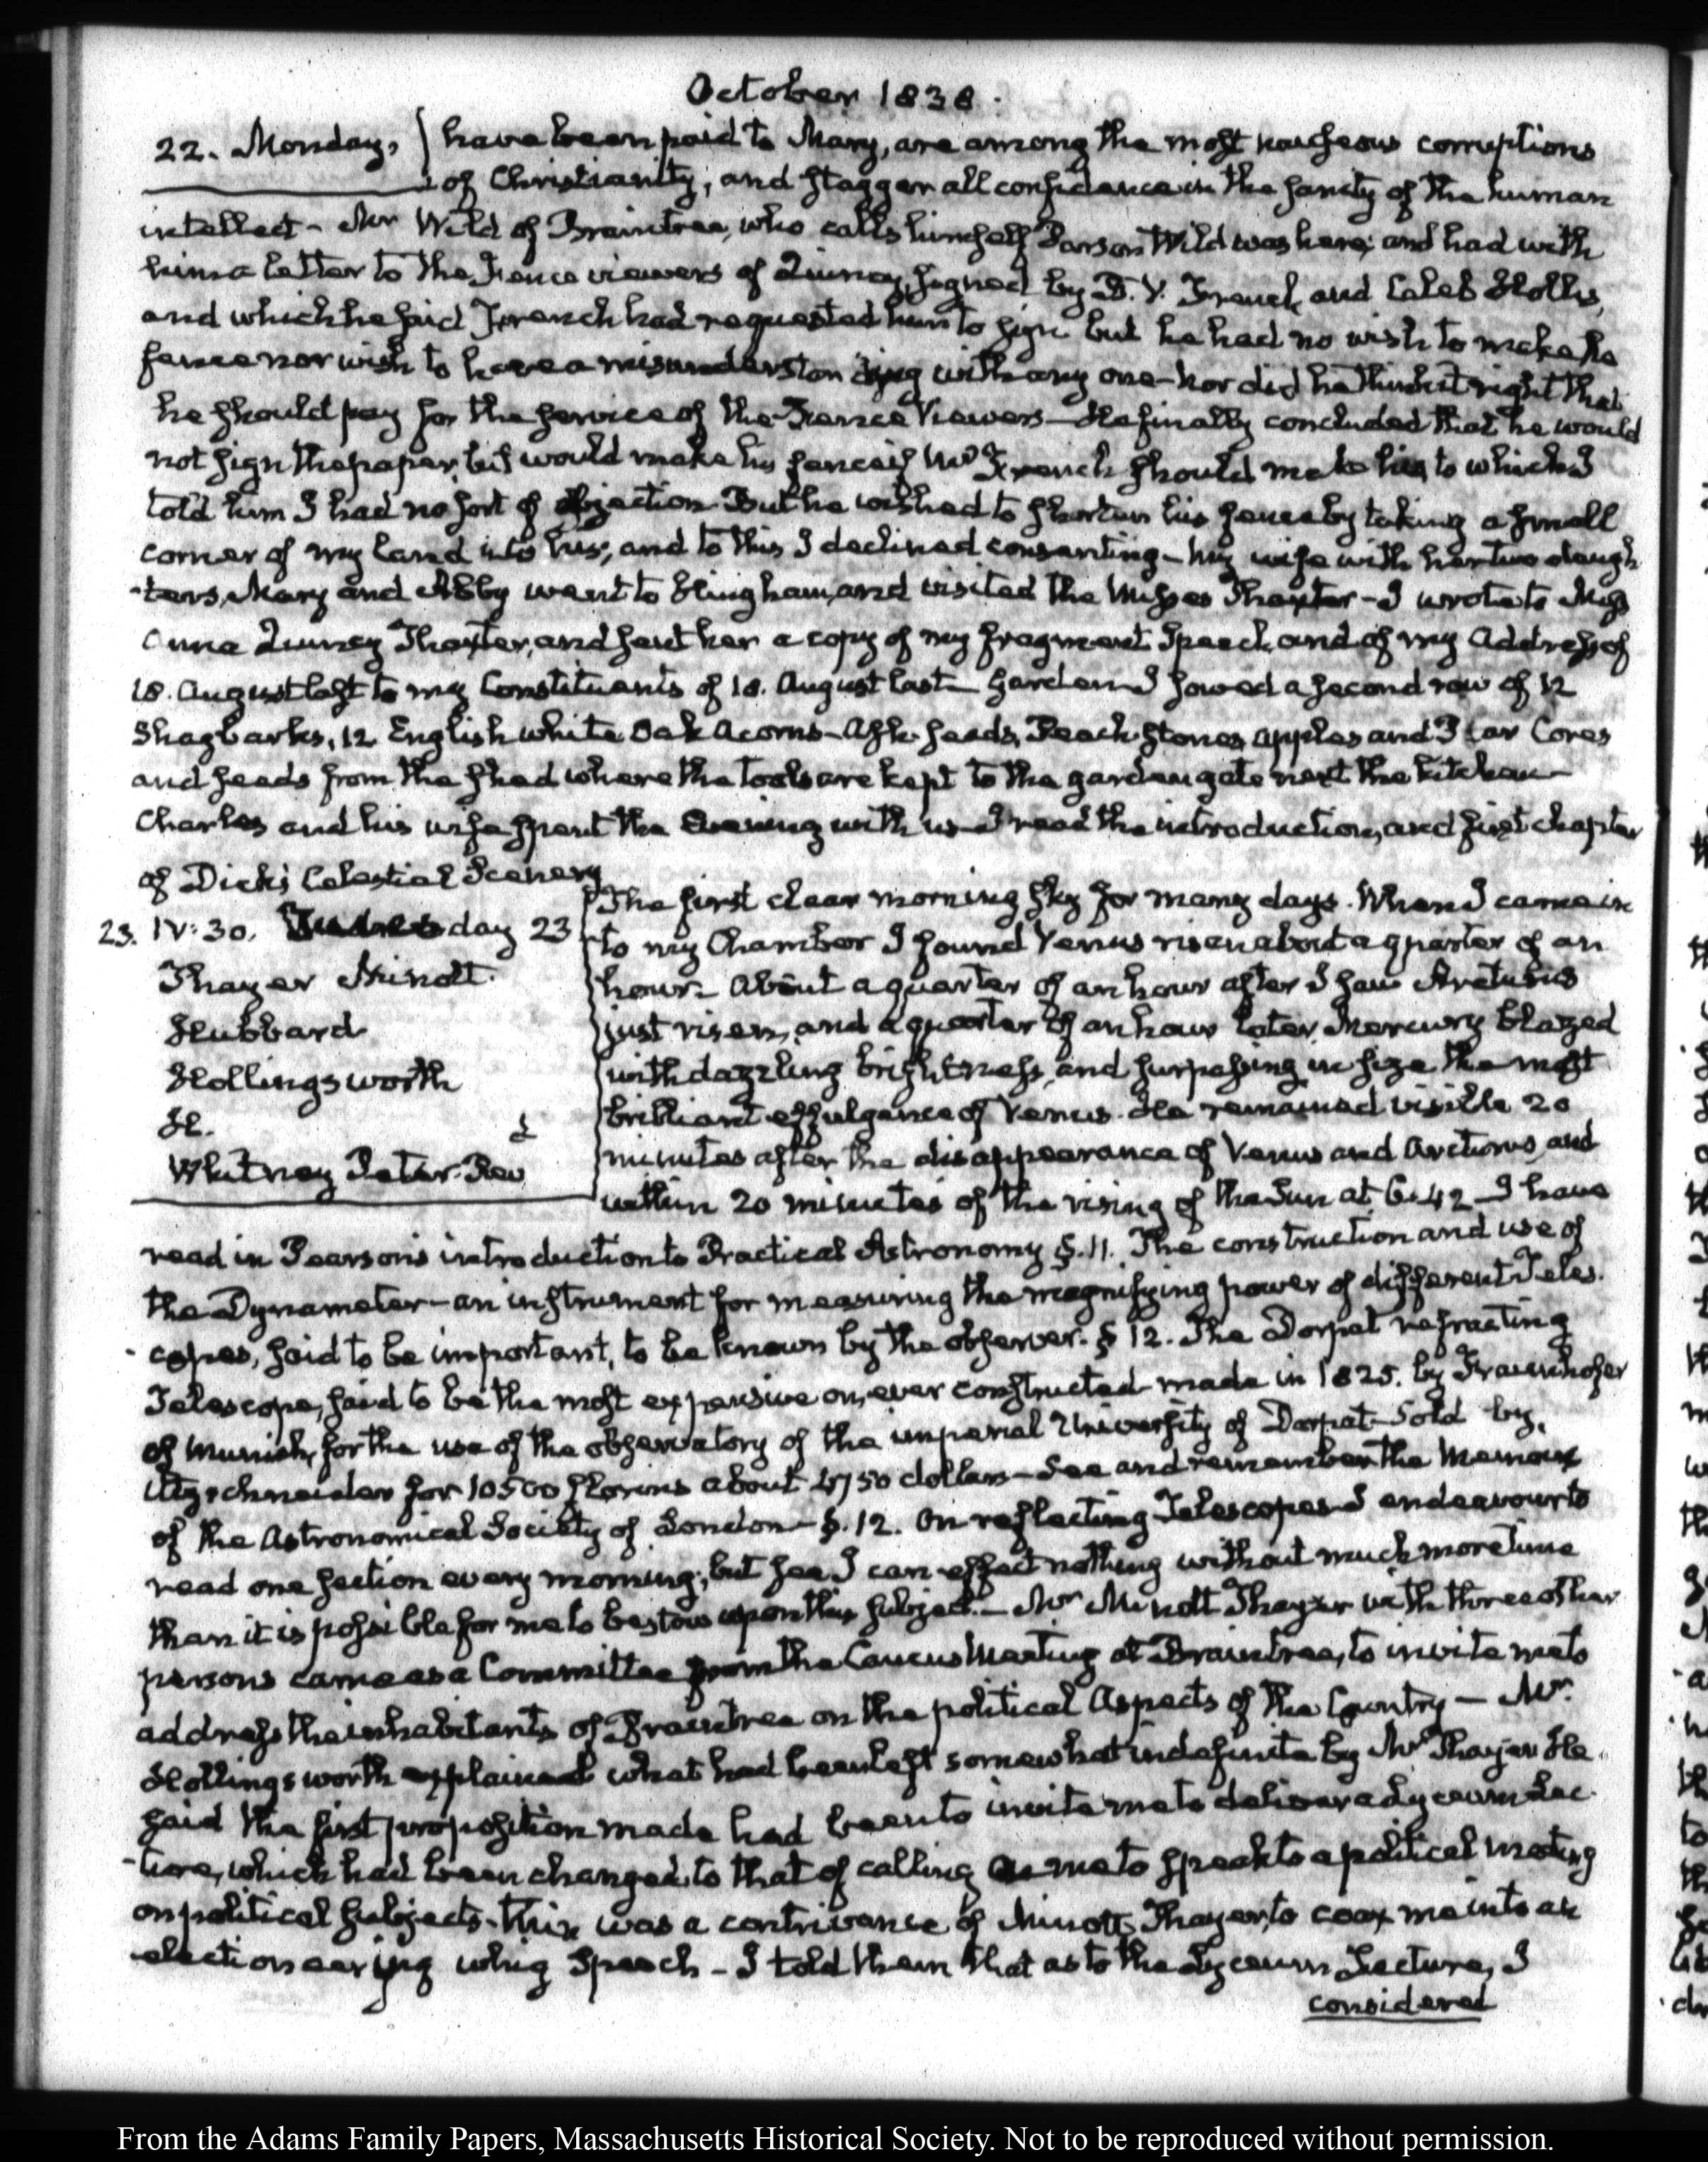 October 1838.
22. Monday, have been paid to Mary, are among the most nauseous corruptions
of Christianity; and stagger all confidence in the sanity of the human
intellect - Mr Wild of Braintree, who calls himself Parson Wild was here; and had with
him a letter to the Fence viewers of Quincy, signed by B. V. French and Caleb Hollis,
and which he said French had requested him to sign but he had no wish to make the
fence nor wish to have a misunderstanding with any one - nor did he think it right that
he should pay for the service of the Fence Viewers - He finally concluded that he would
not sign the paper, but would make his fence if Mr French should make his, to which I
told him I had no sort of objection. But he wished to shorten his fence by taking a small
corner of my land into his; and to this I declined consenting - My wife with her two daugh
-ters, Mary and Abby went to Hingham, and visited the Misses Thaxter - I wrote to Miss
Anna Quincy Thaxter, and sent her a copy of my fragment Speech and of my Address of
18. August last to my Constituents of 18. August last - Garden I sowed a second row of 12
Shagbarks, 12 English white Oak Acorns - Ash seeds, Peach stones, apples and Pear Cores
and seeds from the shed where the tools are kept to the garden gate next the kitchen -
Charles and his wife spent the Evening with us - I read the introduction, and first chapter
of Dick's Celestial Scenery
23. IV:30. Tuesday 23
Thayer Minott.
Hubbard
Hollingsworth
H. &
Whitney Peter. Rev
The first clear morning sky for many days. When I came in
to my Chamber I found Venus risen about a quarter of an
hour. About a quarter of an hour after I saw Arcturus
just risen, and a quarter of an hour later, Mercury blazed
with dazzling brightness, and surpassing in size the most
brilliant effulgence of Venus. He remained visible 20
minutes after the disappearance of Venus and Arcturus, and
within 20 minutes of the rising of the Sun at 6.42 - I have
read in Pearson's introduction to Practical Astronomy §.11. The construction and use of
the Dynameter - an instrument for measuring the magnifying power of different Teles.
- copes, said to be important, to be known by the observer. § 12. The Dorpat refracting
Telescope, said to be the most expensive one, ever constructed made in 1825. by Fraunhofer
of Munich, for the use of the observatory of the imperial University of Dorpat - Sold by,
Utzschneider for 10500 florins about 4750 dollars - See and remember the Memoirs
of the Astronomical Society of London - §.12. On reflecting Telescopes I endeavour to
read one section every morning; but see I can effect nothing without much more time
than it is possible for me to bestow upon this subject. - Mr Minott Thayer with three other
persons came as a Committee from the Caucus Meeting at Braintree, to invite me to
address the inhabitants of Braintree on the political Aspects of the Country - Mr.
Hollingsworth explained what had been left somewhat indefinite by Mr Thayer. He
said the first proposition made had been to invite me to deliver a Lyceum Lec-
-ture, which had been changed to that of calling me to speak to a political meeting
on political subjects. This was a contrivance of Minott Thayer, to coax me into an
electioneering whig Speech - I told them that as to the Lyceum Lecture, I
considered
From the Adams Family Papers, Massachusetts Historical Society. Not to be reproduced without permission.